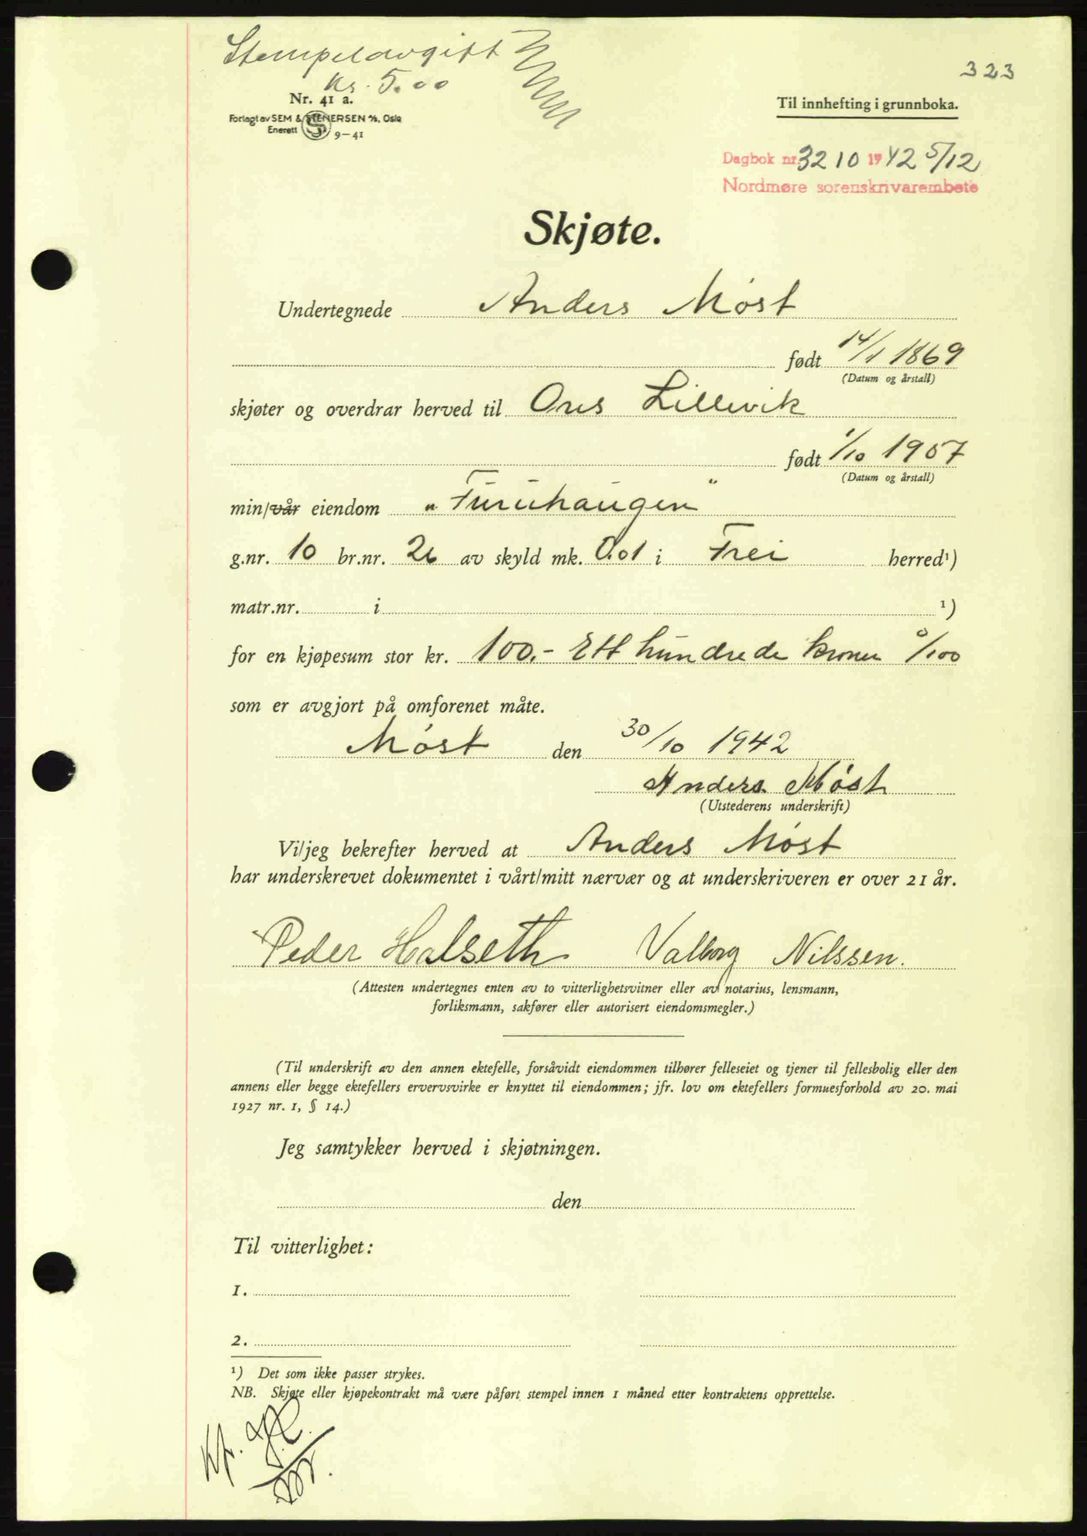 Stempelavgift
kr. 5.00
323
Nr. 41 a.
Til innhefting i grunnboka.
Forlagt av SEM & STENERSEN A/S, Oslo
Enerett S 9-41
Dagbok nr 3210 1942 5/12
Nordmøre sorenskrivarembete
Skjøte.
Undertegnede Anders Møst
født 14/1 1869
(Datum og årstall)
skjøter og overdrar herved til Ons Lillevik
født 1/10 1907
(Datum og årstall)
min/vår eiendom „Furuhaugen"
g.nr. 10 br.nr. 26 av skyld mk. 0.01 i Frei herred¹)
matr.nr. i ¹)
for en kjøpesum stor kr. 100.- Ett hundrede kroner 0/100
som er avgjort på omforenet måte.
Møst den 30/10 1942
Anders Møst
(Utstederens underskrift)
Vi/jeg bekrefter herved at Anders Møst
har underskrevet dokumentet i vårt/mitt nærvær og at underskriveren er over 21 år.
Peder Halseth Valborg Nilssen.
(Attesten undertegnes enten av to vitterlighetsvitner eller av notarius, lensmann,
forliksmann, sakfører eller autorisert eiendomsmegler.)
(Til underskrift av den annen ektefelle, forsåvidt eiendommen tilhører felleseiet og tjener til fellesbolig eller den
annens eller begge ektefellers ervervsvirke er knyttet til eiendommen; jfr. lov om ektefellers formuesforhold av 20. mai
1927 nr. 1, § 14.)
Jeg samtykker herved i skjøtningen.
den
Til vitterlighet:
1.
2.
¹) Det som ikke passer strykes.
NB. Skjøte eller kjøpekontrakt må være påført stempel innen 1 måned etter kontraktens opprettelse.